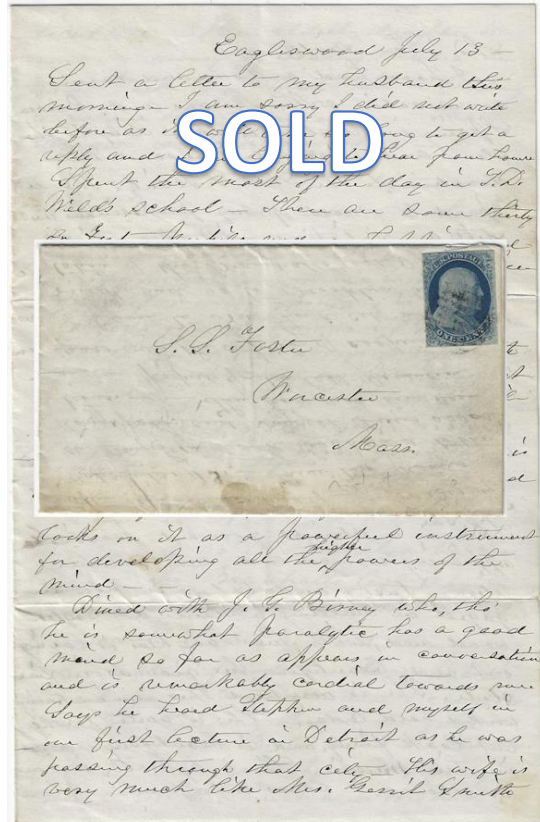 Eagleswood July 13 –
Sent a letter to my husband this
morning – I am sorry I did not write
before as it will be so long to get a
reply and I to hear from home
Spent the most of the day in T. D.
Weld's school – There are some thirty
SOLD
U.S. POSTAGE
ONE CENT
S. S. Foster
Worcester
Mass.
looks on it as a powerful instrument
for developing all the higher powers of the
mind –
Dined with J. G. Birney who, tho'
he is somewhat paralytic has a good
mind so far as appears in conversation
and is remarkably cordial towards me
Says he heard Stephen and myself in
our first lecture in Detroit as he was
passing through that city. His wife is
very much like Mrs. Gerrit Smith